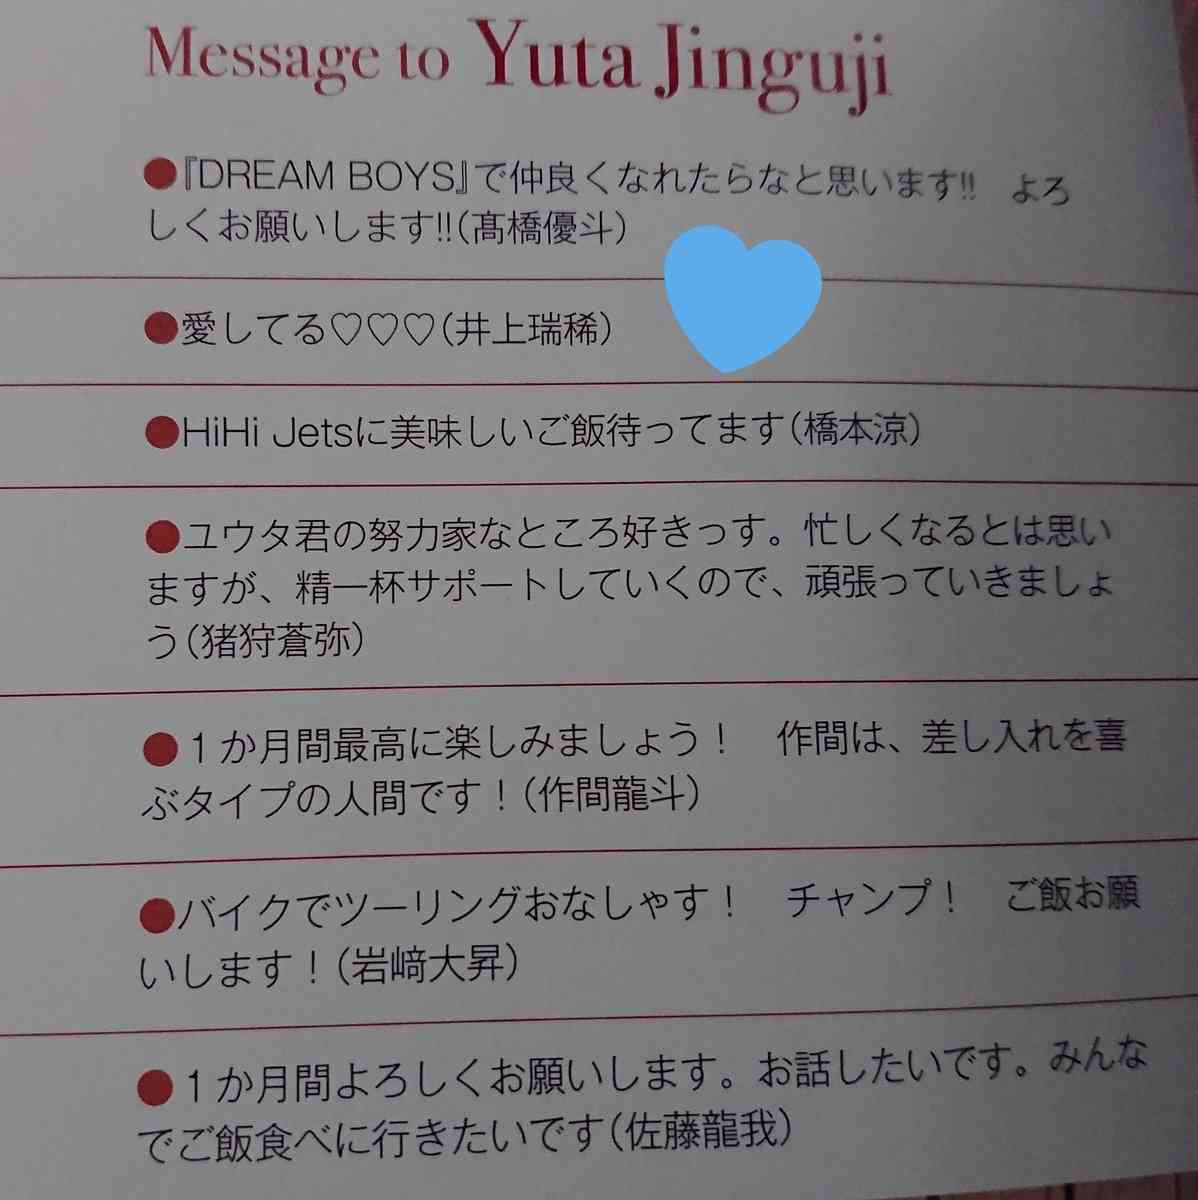 Message to Yuta Jinguji
●『DREAM BOYS』で仲良くなれたらなと思います!! よろ
しくお願いします!!(髙橋優斗)
●愛してる♡♡♡(井上瑞稀)
●HiHi Jetsに美味しいご飯待ってます(橋本涼)
●ユウタ君の努力家なところ好きっす。忙しくなるとは思い
ますが、精一杯サポートしていくので、頑張っていきましょ
う(猪狩蒼弥)
●1か月間最高に楽しみましょう! 作間は、差し入れを喜
ぶタイプの人間です!(作間龍斗)
●バイクでツーリングおなしゃす! チャンプ! ご飯お願
いします!(岩﨑大昇)
●1か月間よろしくお願いします。お話したいです。みんな
でご飯食べに行きたいです(佐藤龍我)